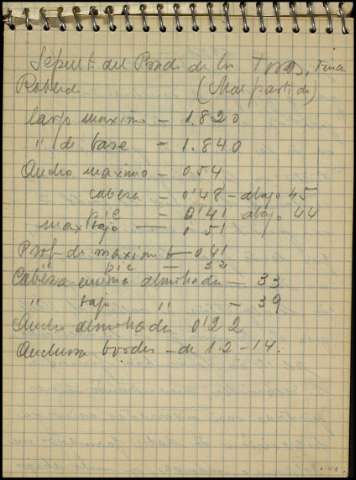 Sepult. del Prado de la
Robledo (Malpartida)
largo maximo - 1.820
" de base - 1.840
Ancho maximo - 0.54
cabeza - 0'48 - abajo 45
pie - 0'41 abajo 44
max bajo - 0'51
Prof. do maximo - 0.41
" pie - 32
Cabeza encima almohada - 33
" bajo " - 39
Ancho almohada 0'22
Anchura bordes - de 12-14.